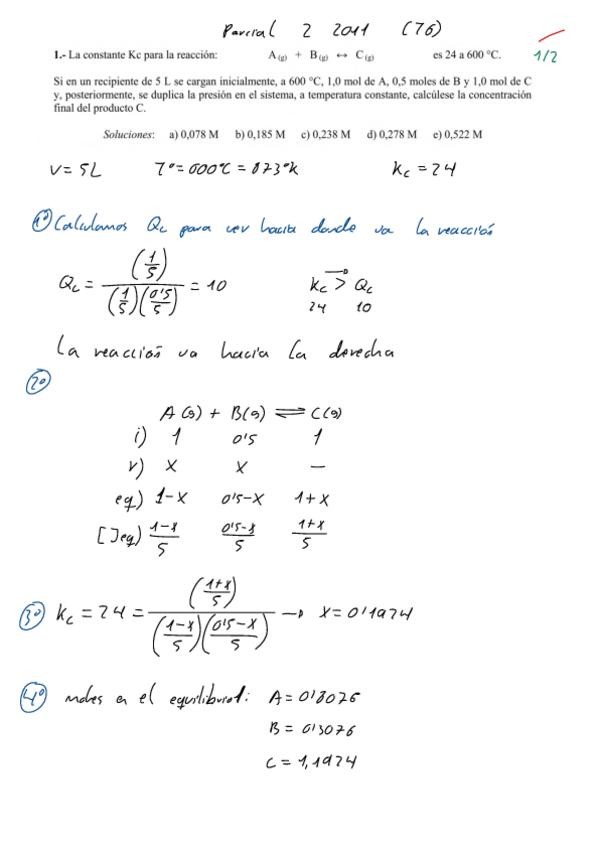 Parcial 2 2011 (76)
1/2
1.- La constante Kc para la reacción: A (g) + B(g) ↔ C(g) es 24 a 600 °C.
Si en un recipiente de 5 L se cargan inicialmente, a 600 °C, 1,0 mol de A, 0,5 moles de B y 1,0 mol de C
y, posteriormente, se duplica la presión en el sistema, a temperatura constante, calcúlese la concentración
final del producto C.
Soluciones: a) 0,078 M b) 0,185 M c) 0,238 M d) 0,278 M e) 0,522 M
V = 5L Tº = 600ºC = 873ºK Kc = 24
1º Calculamos Qc para ver hacia donde va la reacción
Qc = (1/5) / (1/5)(0'5/5) = 10 Kc > Qc
24 10
La reacción va hacia la derecha
2º
A(g) + B(g) ⇌ C(g)
i) 1 0'5 1
r) x x —
eq) 1-x 0'5-x 1+x
[ ]eq) 1-x/5 0'5-x/5 1+x/5
3º Kc = 24 = (1+x/5) / (1-x/5)(0'5-x/5) → x = 0'1924
4º moles en el equilibrio: A = 0'8076
B = 0'3076
C = 1,1924